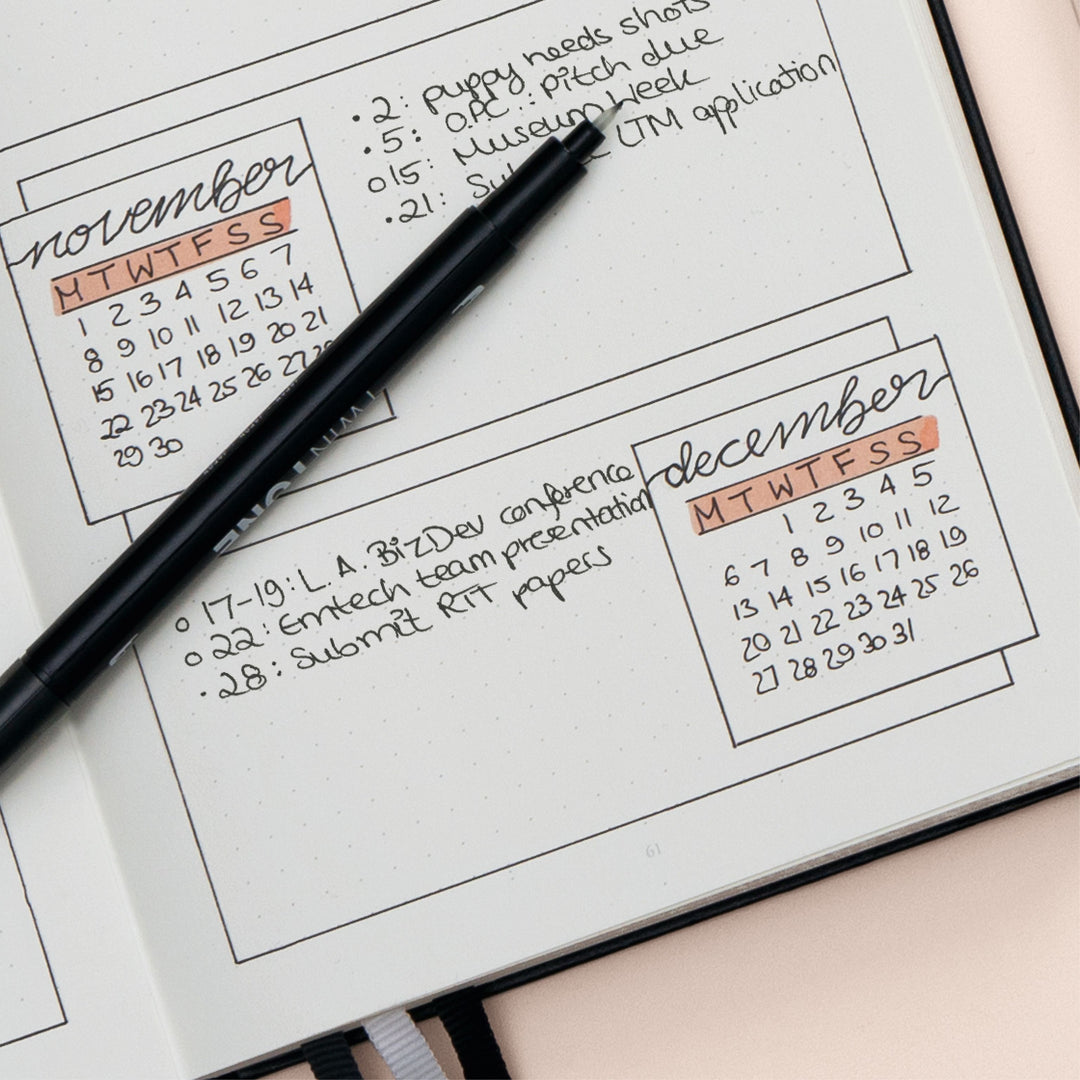 .2: puppy needs shots
.5: O.P.C..: pitch due
o15: Museum Week
.21: LTM application
november
M T W T F S S
1 2 3 4 5 6 7
8 9 10 11 12 13 14
15 16 17 18 19 20 21
22 23 24 25 26 27 28
29 30
december
M T W T F S S
1 2 3 4 5
6 7 8 9 10 11 12
13 14 15 16 17 18 19
20 21 22 23 24 25 26
27 28 29 30 31
o 17-19: L.A. BizDev conference
o 22: Emtech team presentation
.28: Submit RIT papers
TWIN
61